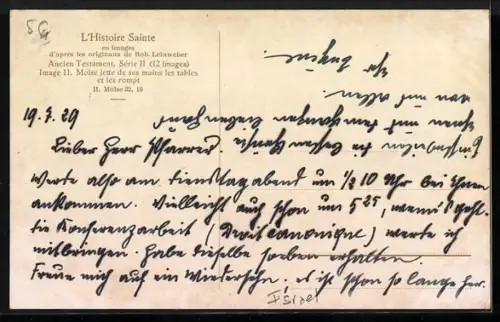 5G
L'Histoire Sainte
en images
d'après les originaux de Rob. Leinweber
Ancien Testament, Série II (12 images)
Image 11. Moïse jette de ses mains les tables
et les rompt
II. Moïse 32, 19
19.3.29
Lieber Herr Pfarrer.
Werde also am Dienstag abend um ½ 10 Uhr bei Ihnen
ankommen. Vielleicht auch schon um 5 25, wenn's geht.
Die Konferenzarbeit (Droit canonique) werde ich
mitbringen. Habe dieselbe soeben erhalten.
Freue mich auf ein Wiedersehn, es ist schon so lange her.
von uns allen
Ihr